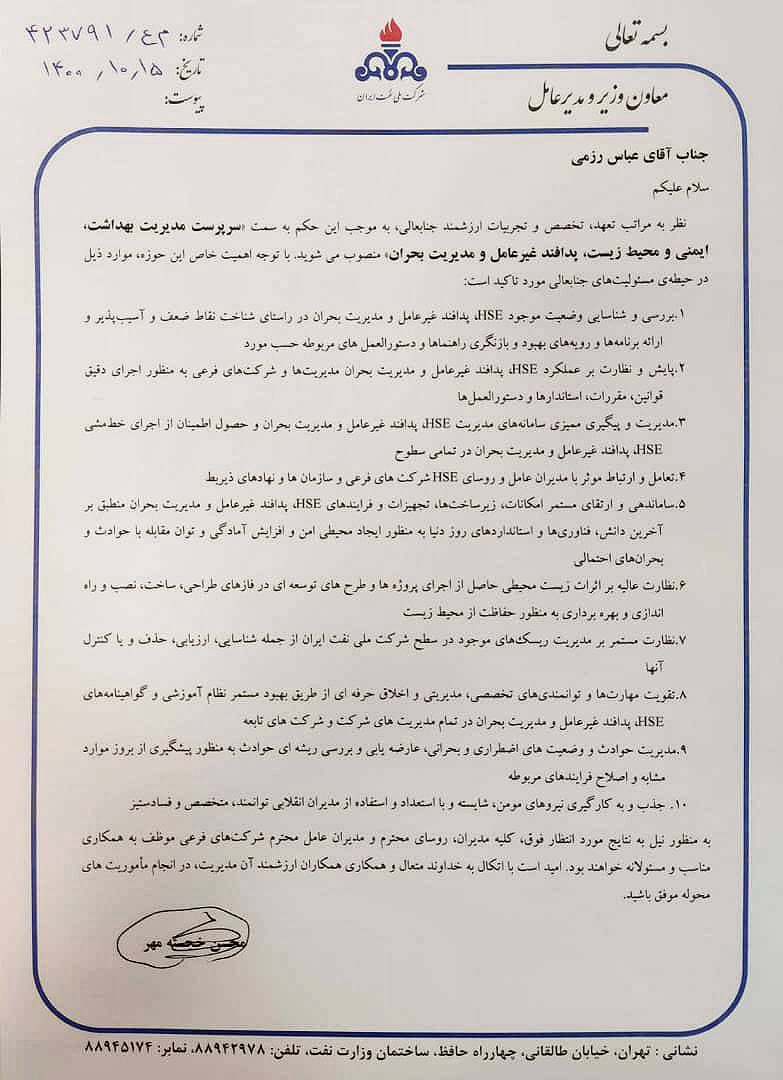 بسمه تعالی
معاون وزیر و مدیرعامل
شرکت ملی نفت ایران
شماره: م ع/ ۴۲۳۷۹۱
تاریخ: ۱۴۰۰/۱۰/۱۵
پیوست:
جناب آقای عباس رزمی
سلام علیکم
نظر به مراتب تعهد، تخصص و تجربیات ارزشمند جنابعالی، به موجب این حکم به سمت «سرپرست مدیریت بهداشت،
ایمنی و محیط زیست، پدافند غیرعامل و مدیریت بحران» منصوب می شوید. با توجه اهمیت خاص این حوزه، موارد ذیل
در حیطه‌ی مسئولیت‌های جنابعالی مورد تاکید است:
۱.بررسی و شناسایی وضعیت موجود HSE، پدافند غیرعامل و مدیریت بحران در راستای شناخت نقاط ضعف و آسیب‌پذیر و
ارائه برنامه‌ها و رویه‌های بهبود و بازنگری راهنماها و دستورالعمل های مربوطه حسب مورد
۲.پایش و نظارت بر عملکرد HSE، پدافند غیرعامل و مدیریت بحران مدیریت‌ها و شرکت‌های فرعی به منظور اجرای دقیق
قوانین، مقررات، استاندارها و دستورالعمل‌ها
۳.مدیریت و پیگیری ممیزی سامانه‌های مدیریت HSE، پدافند غیرعامل و مدیریت بحران و حصول اطمینان از اجرای خط‌مشی
HSE، پدافند غیرعامل و مدیریت بحران در تمامی سطوح
۴.تعامل و ارتباط موثر با مدیران عامل و روسای HSE شرکت های فرعی و سازمان ها و نهادهای ذیربط
۵.ساماندهی و ارتقای مستمر امکانات، زیرساخت‌ها، تجهیزات و فرایندهای HSE، پدافند غیرعامل و مدیریت بحران منطبق بر
آخرین دانش، فناوری‌ها و استانداردهای روز دنیا به منظور ایجاد محیطی امن و افزایش آمادگی و توان مقابله با حوادث و
بحران‌های احتمالی
۶.نظارت عالیه بر اثرات زیست محیطی حاصل از اجرای پروژه ها و طرح های توسعه ای در فازهای طراحی، ساخت، نصب و راه
اندازی و بهره برداری به منظور حفاظت از محیط زیست
۷.نظارت مستمر بر مدیریت ریسک‌های موجود در سطح شرکت ملی نفت ایران از جمله شناسایی، ارزیابی، حذف و یا کنترل
آنها
۸.تقویت مهارت‌ها و توانمندی‌های تخصصی، مدیریتی و اخلاق حرفه ای از طریق بهبود مستمر نظام آموزشی و گواهینامه‌های
HSE، پدافند غیرعامل و مدیریت بحران در تمام مدیریت های شرکت و شرکت های تابعه
۹.مدیریت حوادث و وضعیت های اضطراری و بحرانی، عارضه یابی و بررسی ریشه ای حوادث به منظور پیشگیری از بروز موارد
مشابه و اصلاح فرایندهای مربوطه
۱۰. جذب و به کارگیری نیروهای مومن، شایسته و با استعداد و استفاده از مدیران انقلابی توانمند، متخصص و فسادستیز
به منظور نیل به نتایج مورد انتظار فوق، کلیه مدیران، روسای محترم و مدیران عامل محترم شرکت‌های فرعی موظف به همکاری
مناسب و مسئولانه خواهند بود. امید است با اتکال به خداوند متعال و همکاری همکاران ارزشمند آن مدیریت، در انجام مأموریت های
محوله موفق باشید.
محسن خجسته مهر
نشانی : تهران، خیابان طالقانی، چهارراه حافظ، ساختمان وزارت نفت، تلفن: ۸۸۹۴۲۹۷۸، نمابر: ۸۸۹۴۵۱۷۴